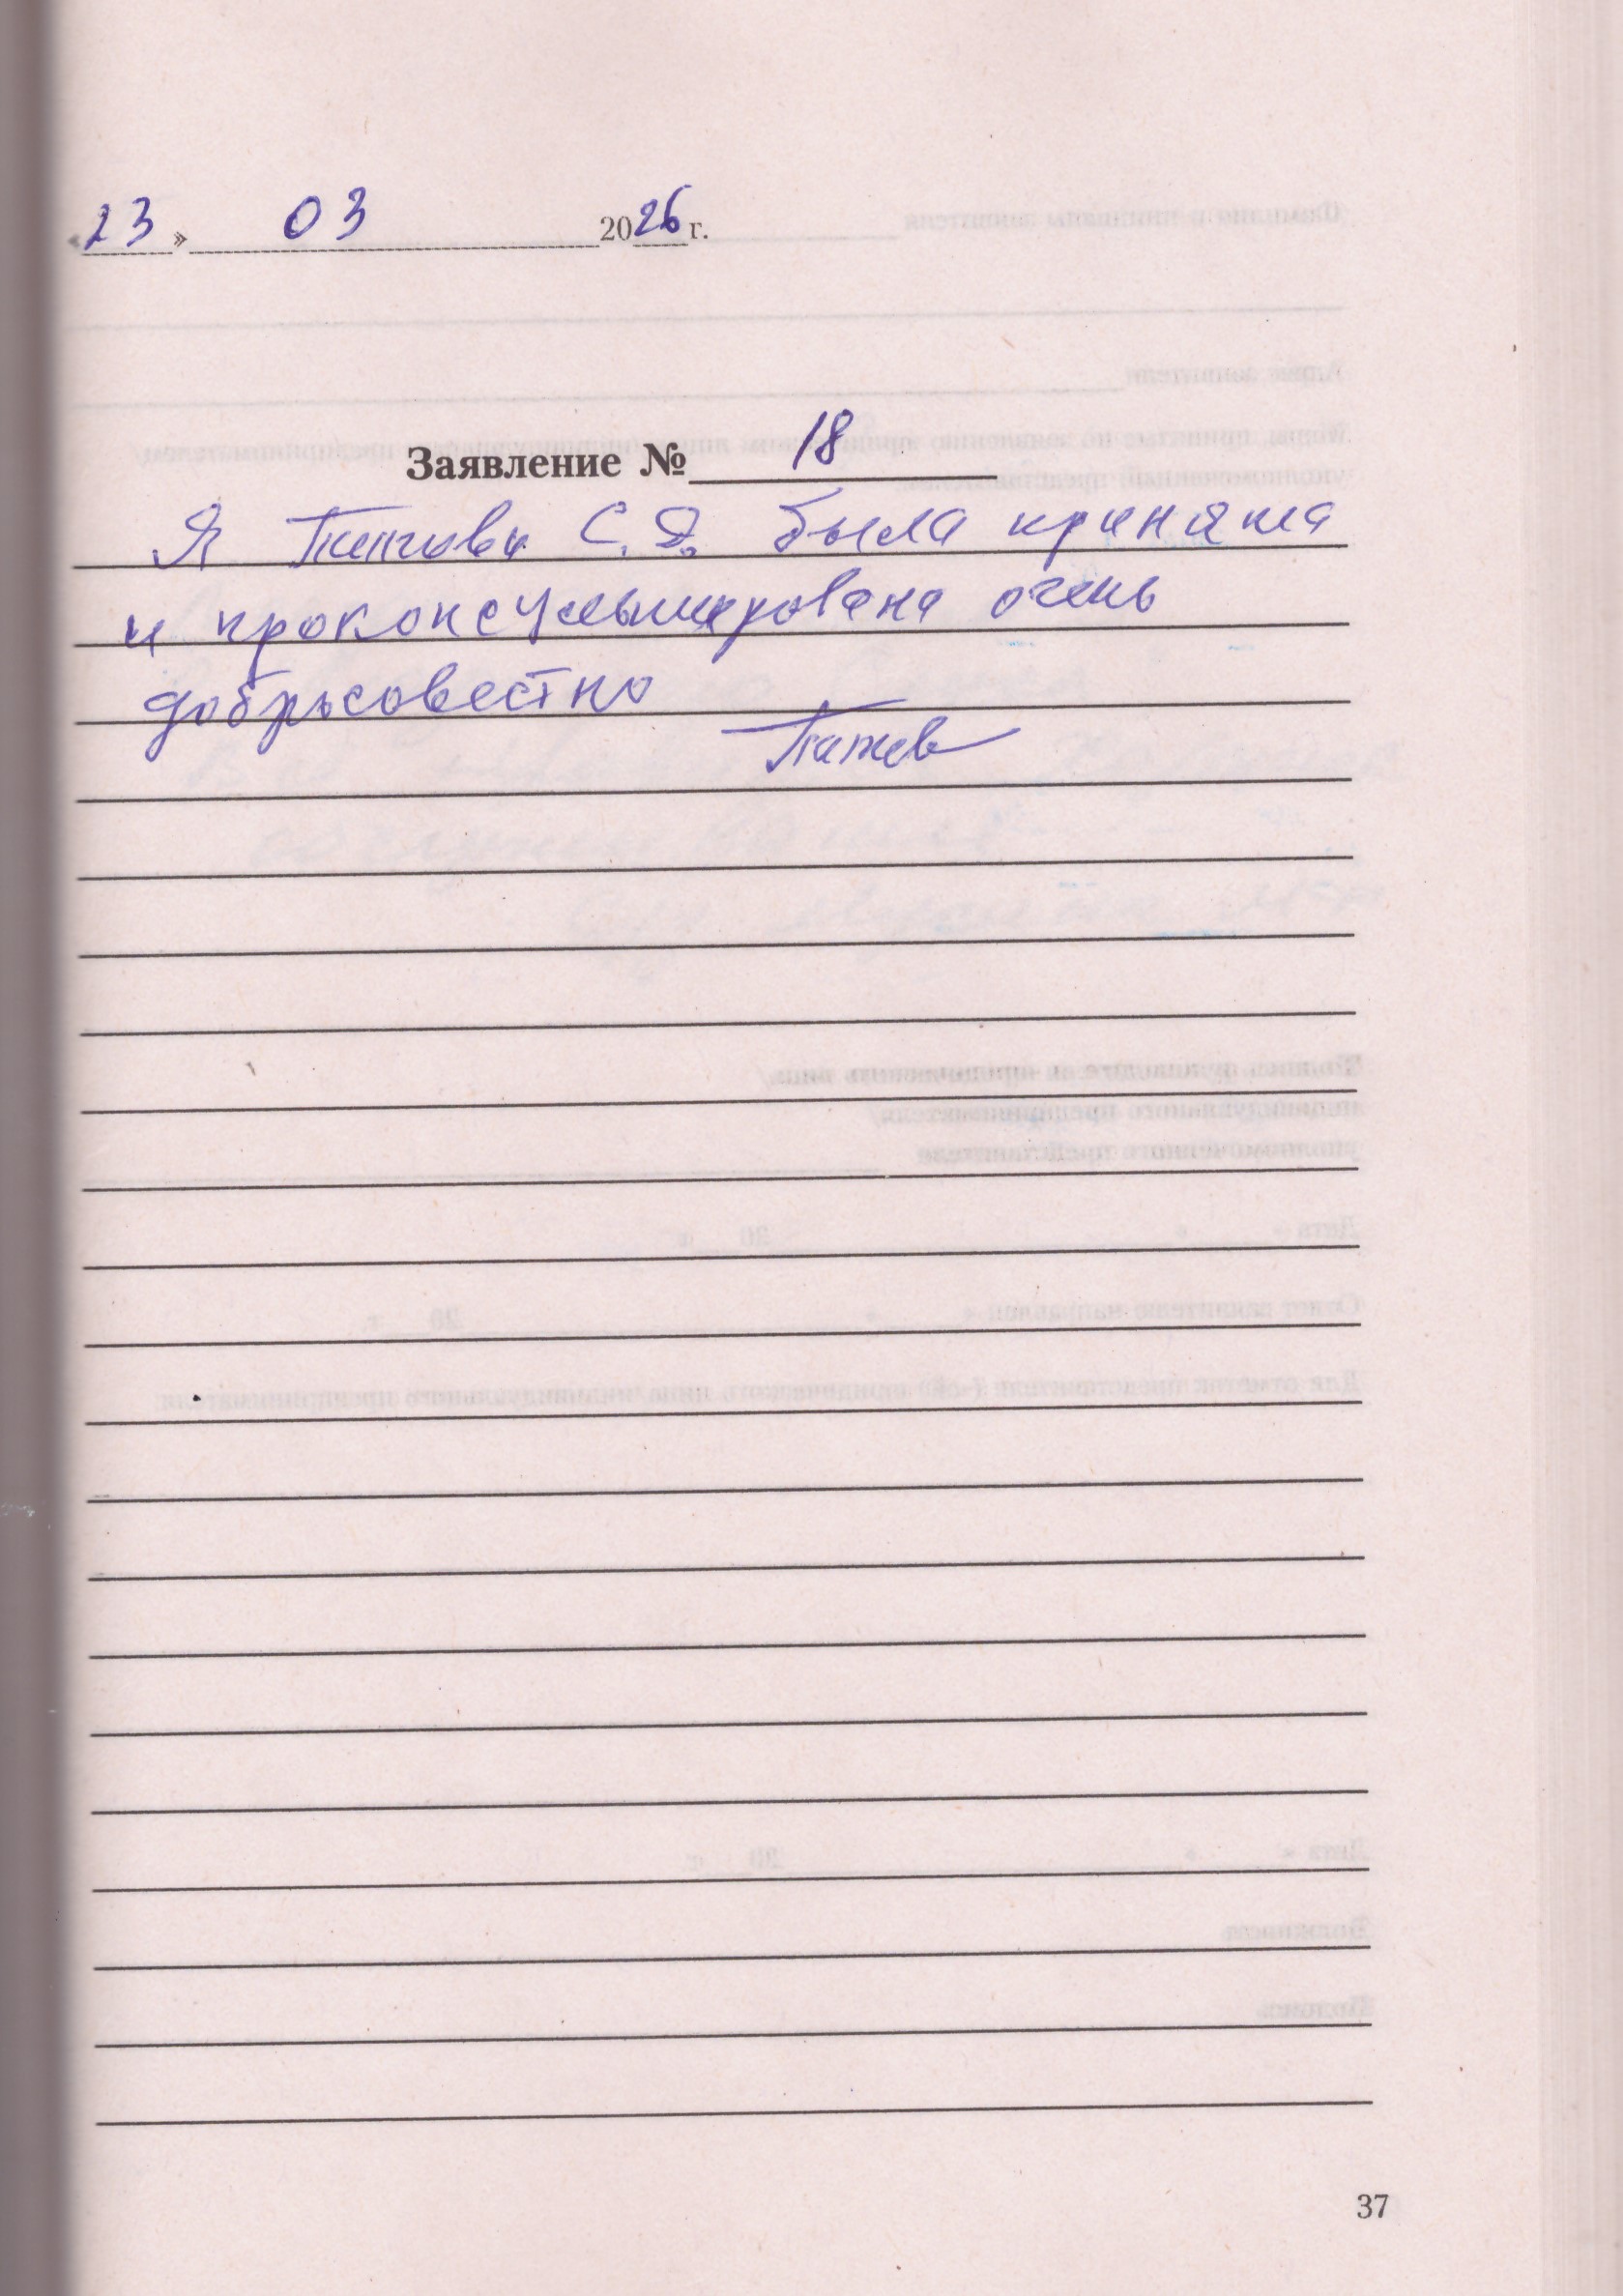 «23» 03 2026 г.
Заявление № 18
Я С. Я. была принята
и проконсультирована очень
добросовестно
37